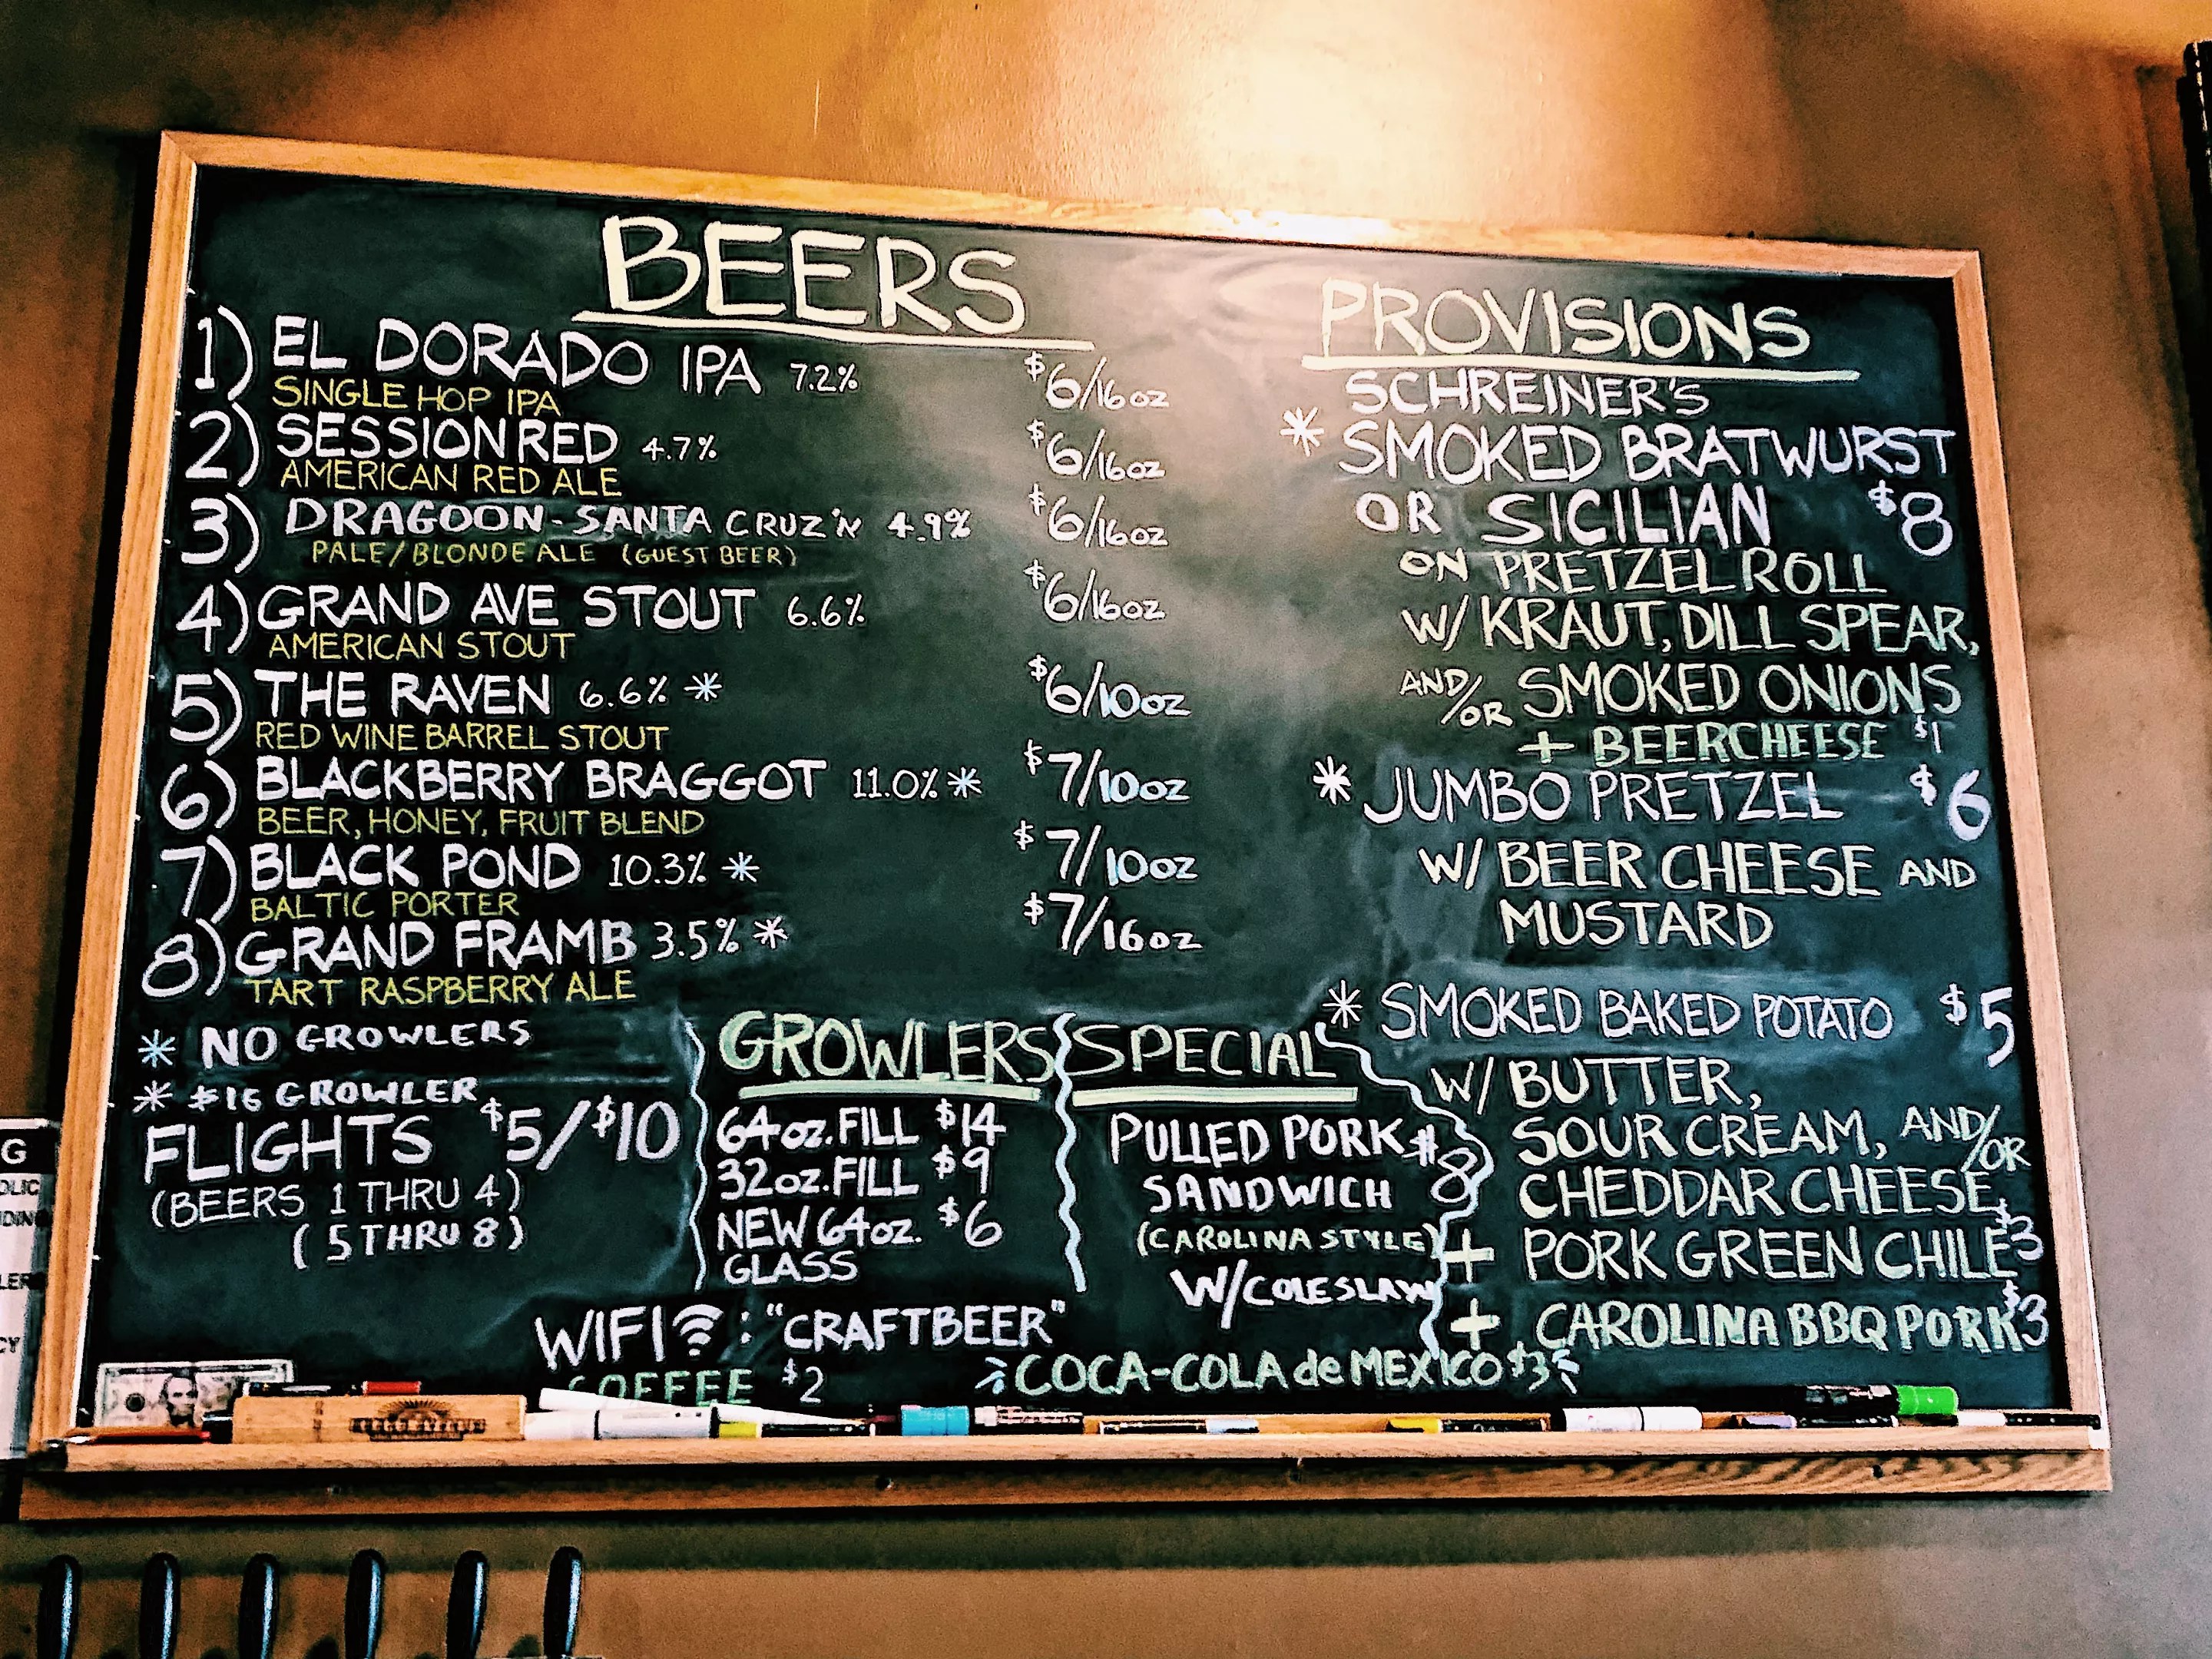 BEERS
1) EL DORADO IPA 7.2% $6/16oz
SINGLE HOP IPA
2) SESSION RED 4.7% $6/16oz
AMERICAN RED ALE
3) DRAGOON-SANTA CRUZ'N 4.9% $6/16oz
PALE/BLONDE ALE (GUEST BEER)
4) GRAND AVE STOUT 6.6% $6/16oz
AMERICAN STOUT
5) THE RAVEN 6.6% * $6/10oz
RED WINE BARREL STOUT
6) BLACKBERRY BRAGGOT 11.0% * $7/10oz
BEER, HONEY, FRUIT BLEND
7) BLACK POND 10.3% * $7/10oz
BALTIC PORTER
8) GRAND FRAMB 3.5% * $7/16oz
TART RASPBERRY ALE
* NO GROWLERS
* $16 GROWLER
FLIGHTS $5/$10
(BEERS 1 THRU 4)
(5 THRU 8)
GROWLERS
64oz. FILL $14
32oz. FILL $9
NEW 64oz. $6
GLASS
SPECIAL
PULLED PORK $8
SANDWICH
(CAROLINA STYLE)
W/COLESLAW
WIFI: "CRAFTBEER"
COFFEE $2
COCA-COLA de MEXICO $3
PROVISIONS
SCHREINER'S
* SMOKED BRATWURST
OR SICILIAN $8
ON PRETZEL ROLL
W/ KRAUT, DILL SPEAR,
AND/OR SMOKED ONIONS
+ BEERCHEESE $1
* JUMBO PRETZEL $6
W/ BEER CHEESE AND
MUSTARD
* SMOKED BAKED POTATO $5
W/ BUTTER,
SOUR CREAM, AND/OR
CHEDDAR CHEESE
+ PORK GREEN CHILE $3
+ CAROLINA BBQ PORK $3
G